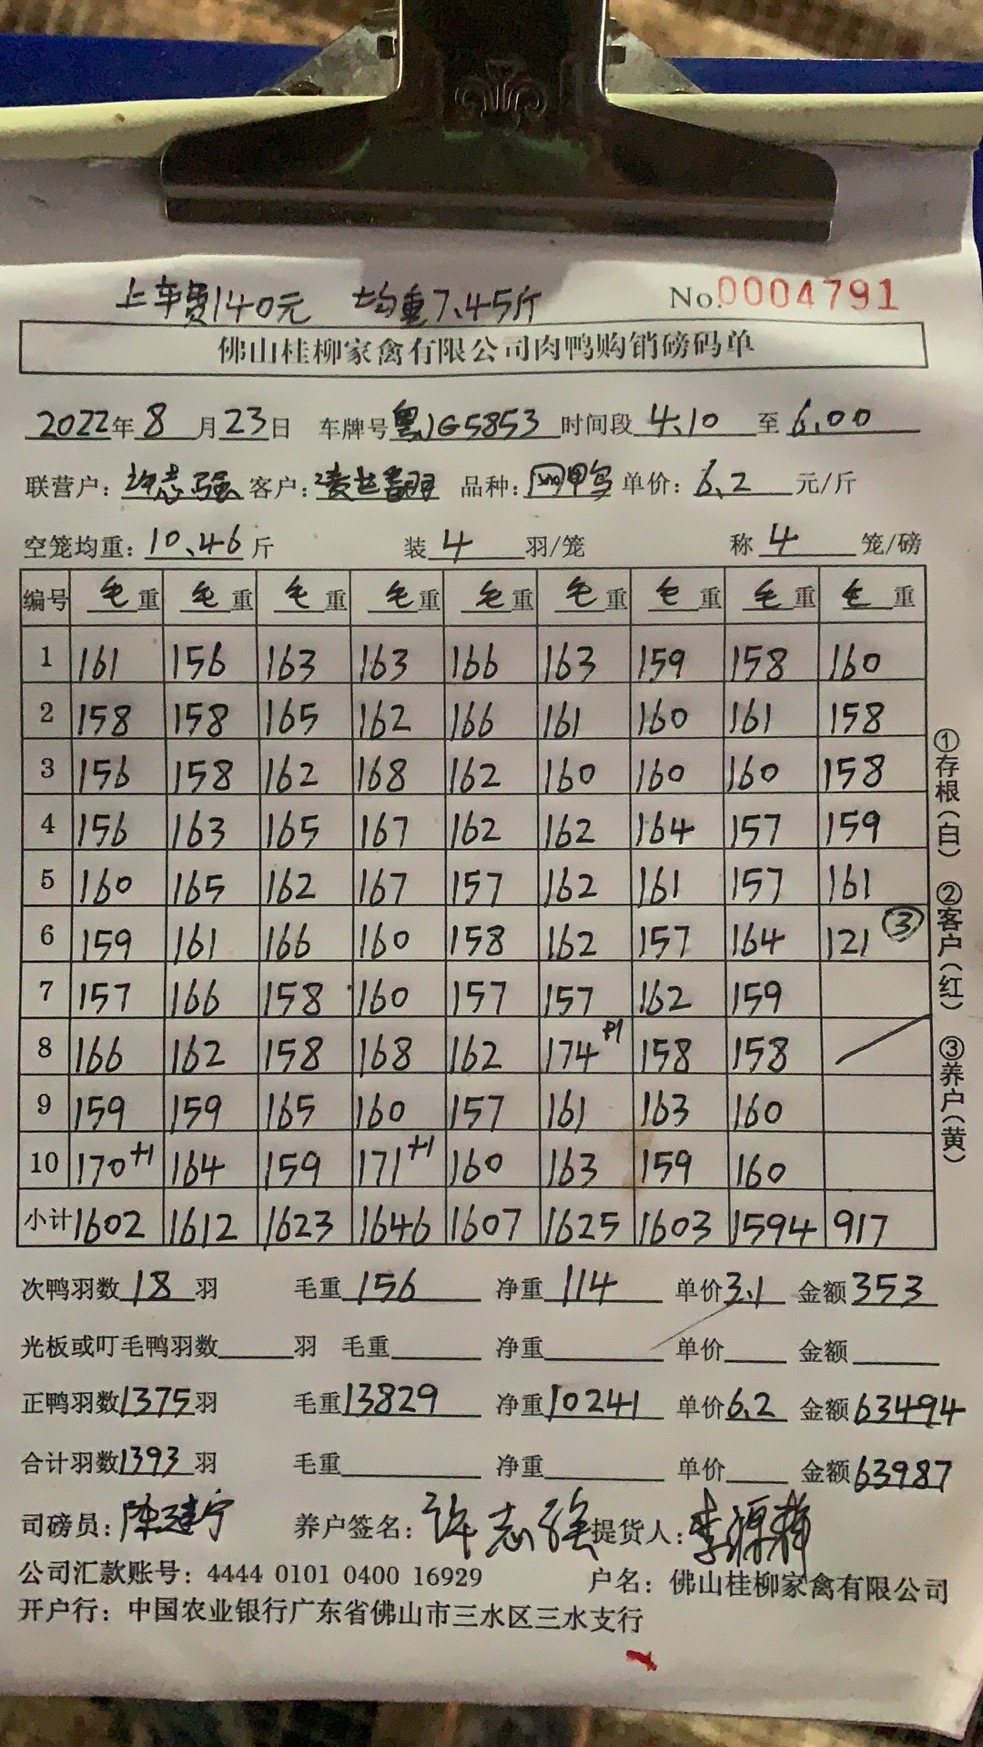 上车费140元 均重7.45斤 No.0004791
佛山桂柳家禽有限公司肉鸭购销磅码单
2022年8月23日 车牌号粤JG5853 时间段4.10至6.00
联营户:许志强 客户: 品种: 单价:6.2元/斤
空笼均重:10.46斤 装4羽/笼 称4笼/磅
编号 毛重 毛重 毛重 毛重 毛重 毛重 毛重 毛重 毛重
1 161 156 163 163 166 163 159 158 160
2 158 158 165 162 166 161 160 161 158
3 156 158 162 168 162 160 160 160 158
4 156 163 165 167 162 162 164 157 159
5 160 165 162 167 157 162 161 157 161
6 159 161 166 160 158 162 157 164 121 ③
7 157 166 158 160 157 157 162 159
8 166 162 158 168 162 174+1 158 158
9 159 159 165 160 157 161 163 160
10 170+1 164 159 171+1 160 163 159 160
小计 1602 1612 1623 1646 1607 1625 1603 1594 917
①存根(白) ②客户(红) ③养户(黄)
次鸭羽数18羽 毛重156 净重114 单价3.1 金额353
光板或叮毛鸭羽数 羽 毛重 净重 单价 金额
正鸭羽数1375羽 毛重13829 净重10241 单价6.2 金额63494
合计羽数1393羽 毛重 净重 单价 金额63987
司磅员:陈建宁 养户签名:许志强 提货人:
公司汇款账号:4444 0101 0400 16929 户名:佛山桂柳家禽有限公司
开户行:中国农业银行广东省佛山市三水区三水支行